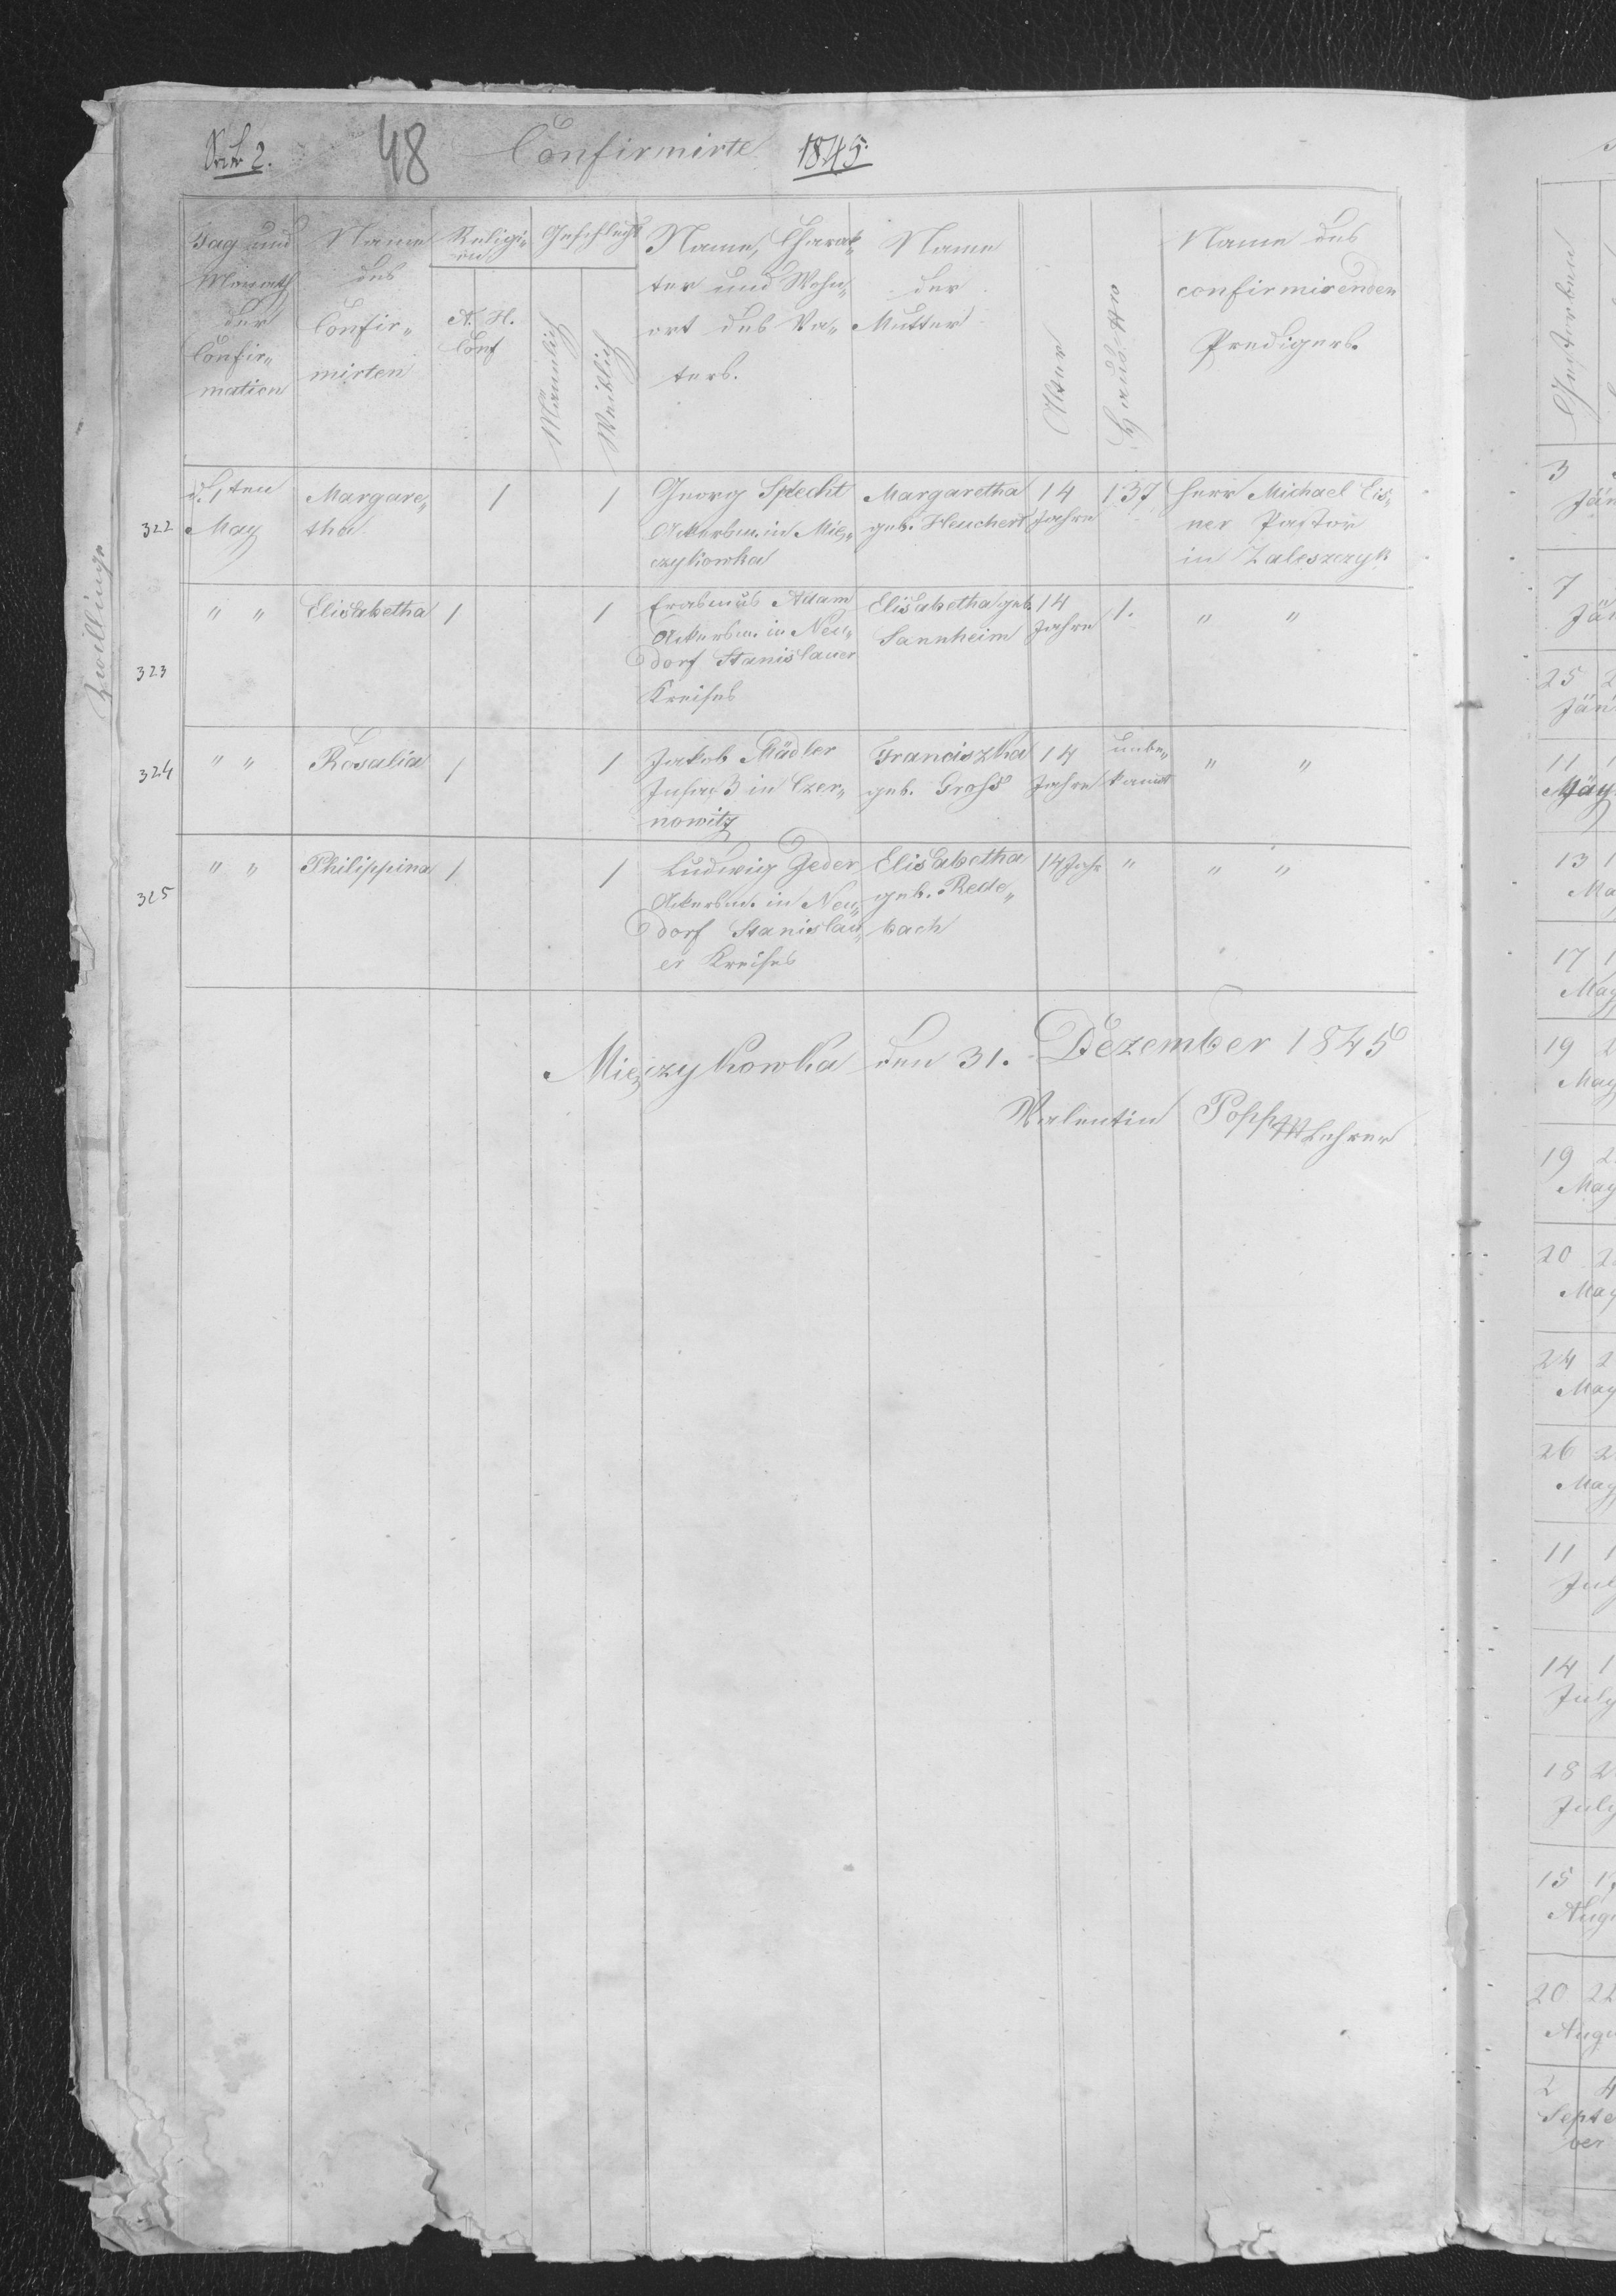 48 Confirmirte 1845.
Tag und Monath der Confir„mation
Name des Confir„mirten
Religi„on
A. H. Conf
Geschlecht
Männlich
Weiblich
Name, Charak„ter und Wohn„ort des Va„ters.
Name der Mutter
Alter
Haus Nro
Name des confirmirenden Predigers.
322 d. 1ten May Margare„tha 1 1 Georg Specht Ackersm. in Mie„czykowka Margaretha geb. Heuchert 14 Jahre 137 Herr Michael Eis„ner Pastor in Zaleszczyk
323 " " Elisabetha 1 1 Erasmus Adam Ackersm. in Neu„dorf Stanislauer Kreises Elisabetha geb. Sannheim 14 Jahre 1. " "
324 " " Rosalia 1 1 Jakob Mädler Insaß in Czer„nowitz Franciszka geb. Groß 14 Jahre unbe„kannt " "
325 " " Philippina 1 1 Ludwig Geder Ackersm. in Neu„dorf Stanislau„er Kreises Elisabetha geb. Rede„bach 14 Jahr " " "
Mieczykowka den 31. Dezember 1845
Valentin Popp Lehrer
Zwillinge
Gestorben
3
Jän
7
Jän
25 2
Jän
11 1
May
13 1
Ma
17 1
May
19 2
May
19 2
May
20 2
May
24 2
May
26 2
May
11 1
July
14 1
July
18 2
July
15 1
Augu
20 22
Augu
2 4
Septe
ber